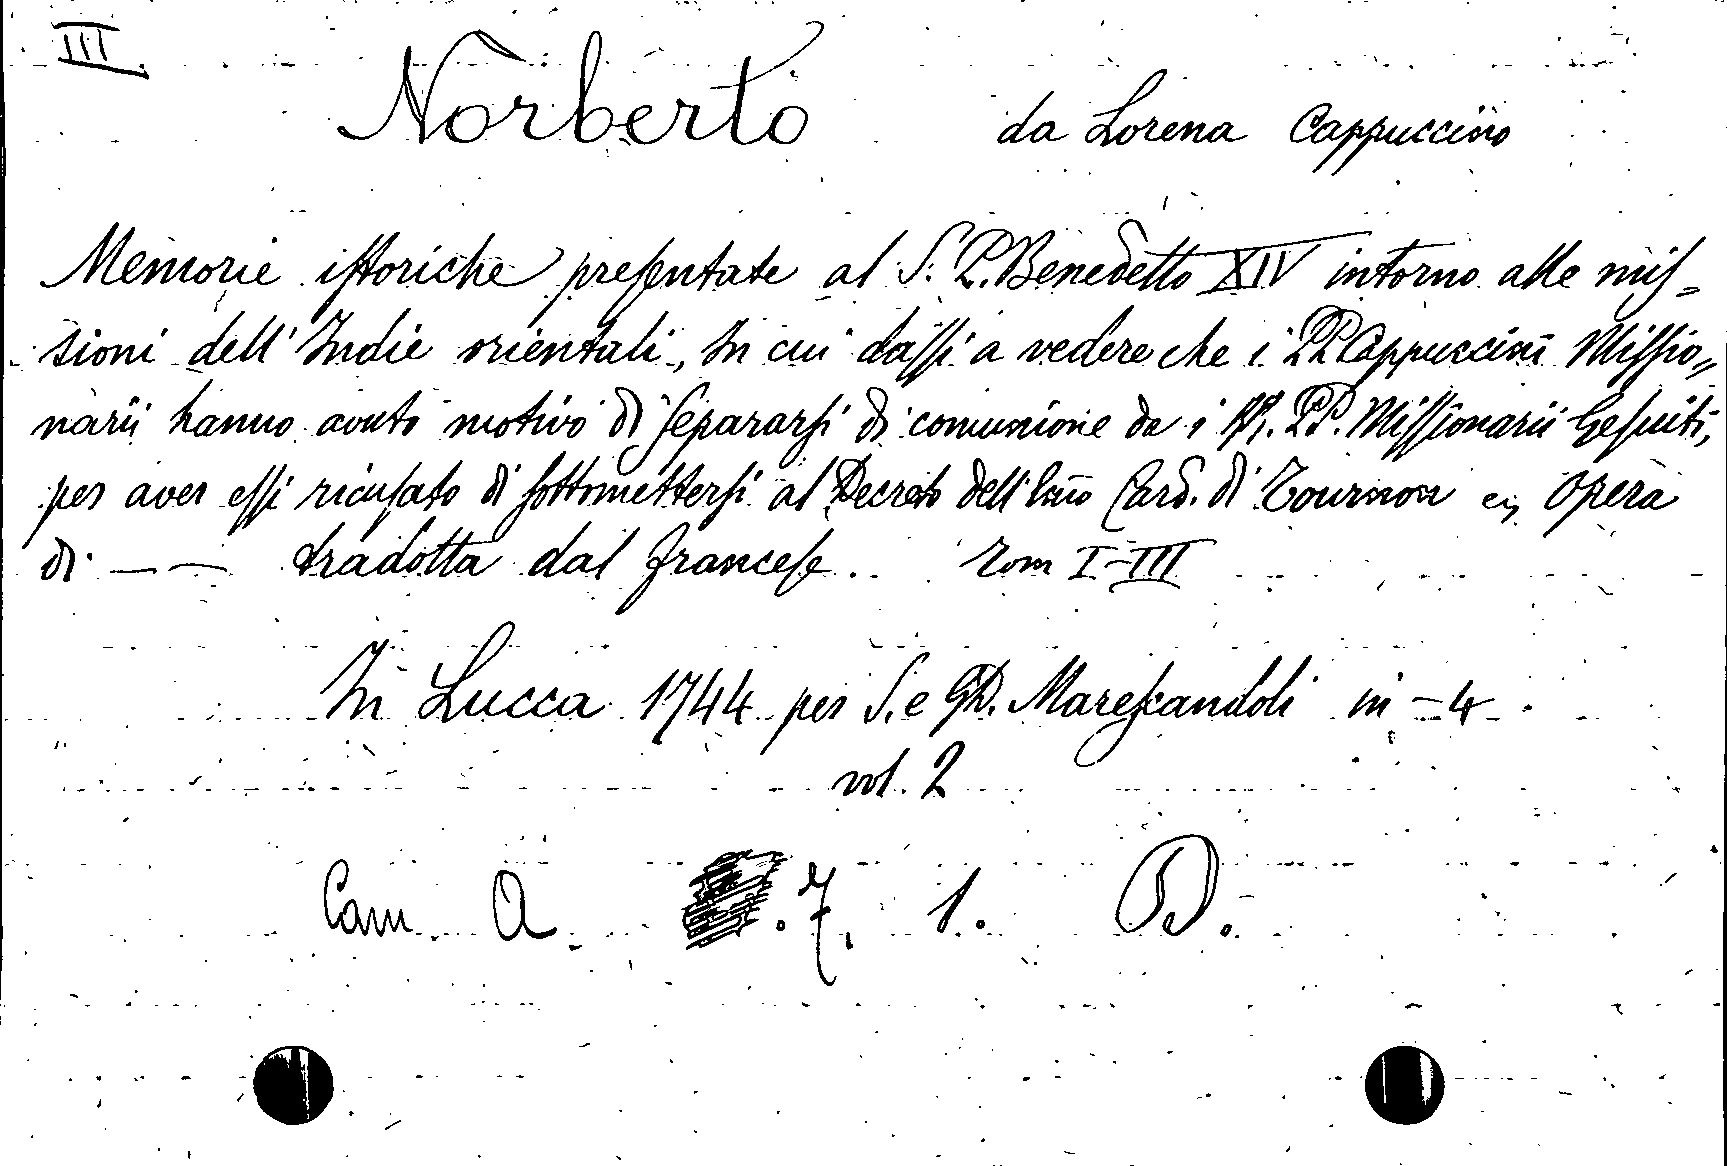 III.
Norberto da Lorena Cappuccino
Memorie istoriche presentate al S. P. Benedetto XIV intorno alle mis=
sioni dell'Indie orientali, In cui dassi a vedere che i PP Cappuccini Missio=
narii hanno avuto motivo di separarsi di comunione da i RR. PP. Missionarii Gesuiti,
per aver essi ricusato di sottomettersi al Decreto dell' Card. di Tournon Opera
di — — tradotta dal francese. Tom I-III
In Lucca 1744 per S. e GD. Marescandoli in-4
vol. 2
Cam A. .7. 1. D.